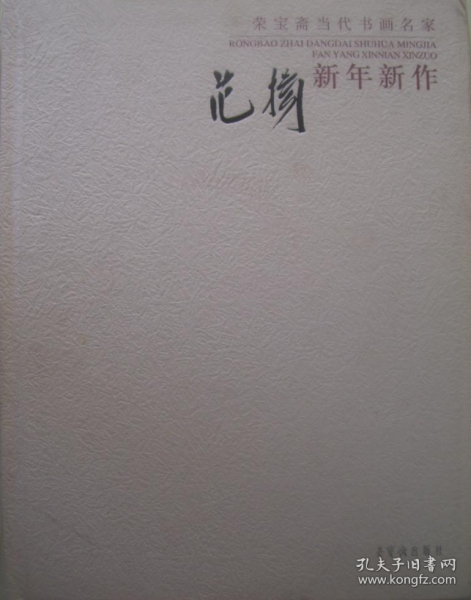 荣宝斋当代书画名家
RONGBAO ZHAI DANGDAI SHUHUA MINGJIA
FAN YANG XINNIAN XINZUO
范扬
新年新作
荣宝斋出版社
孔夫子旧书网
www.kongfz.com